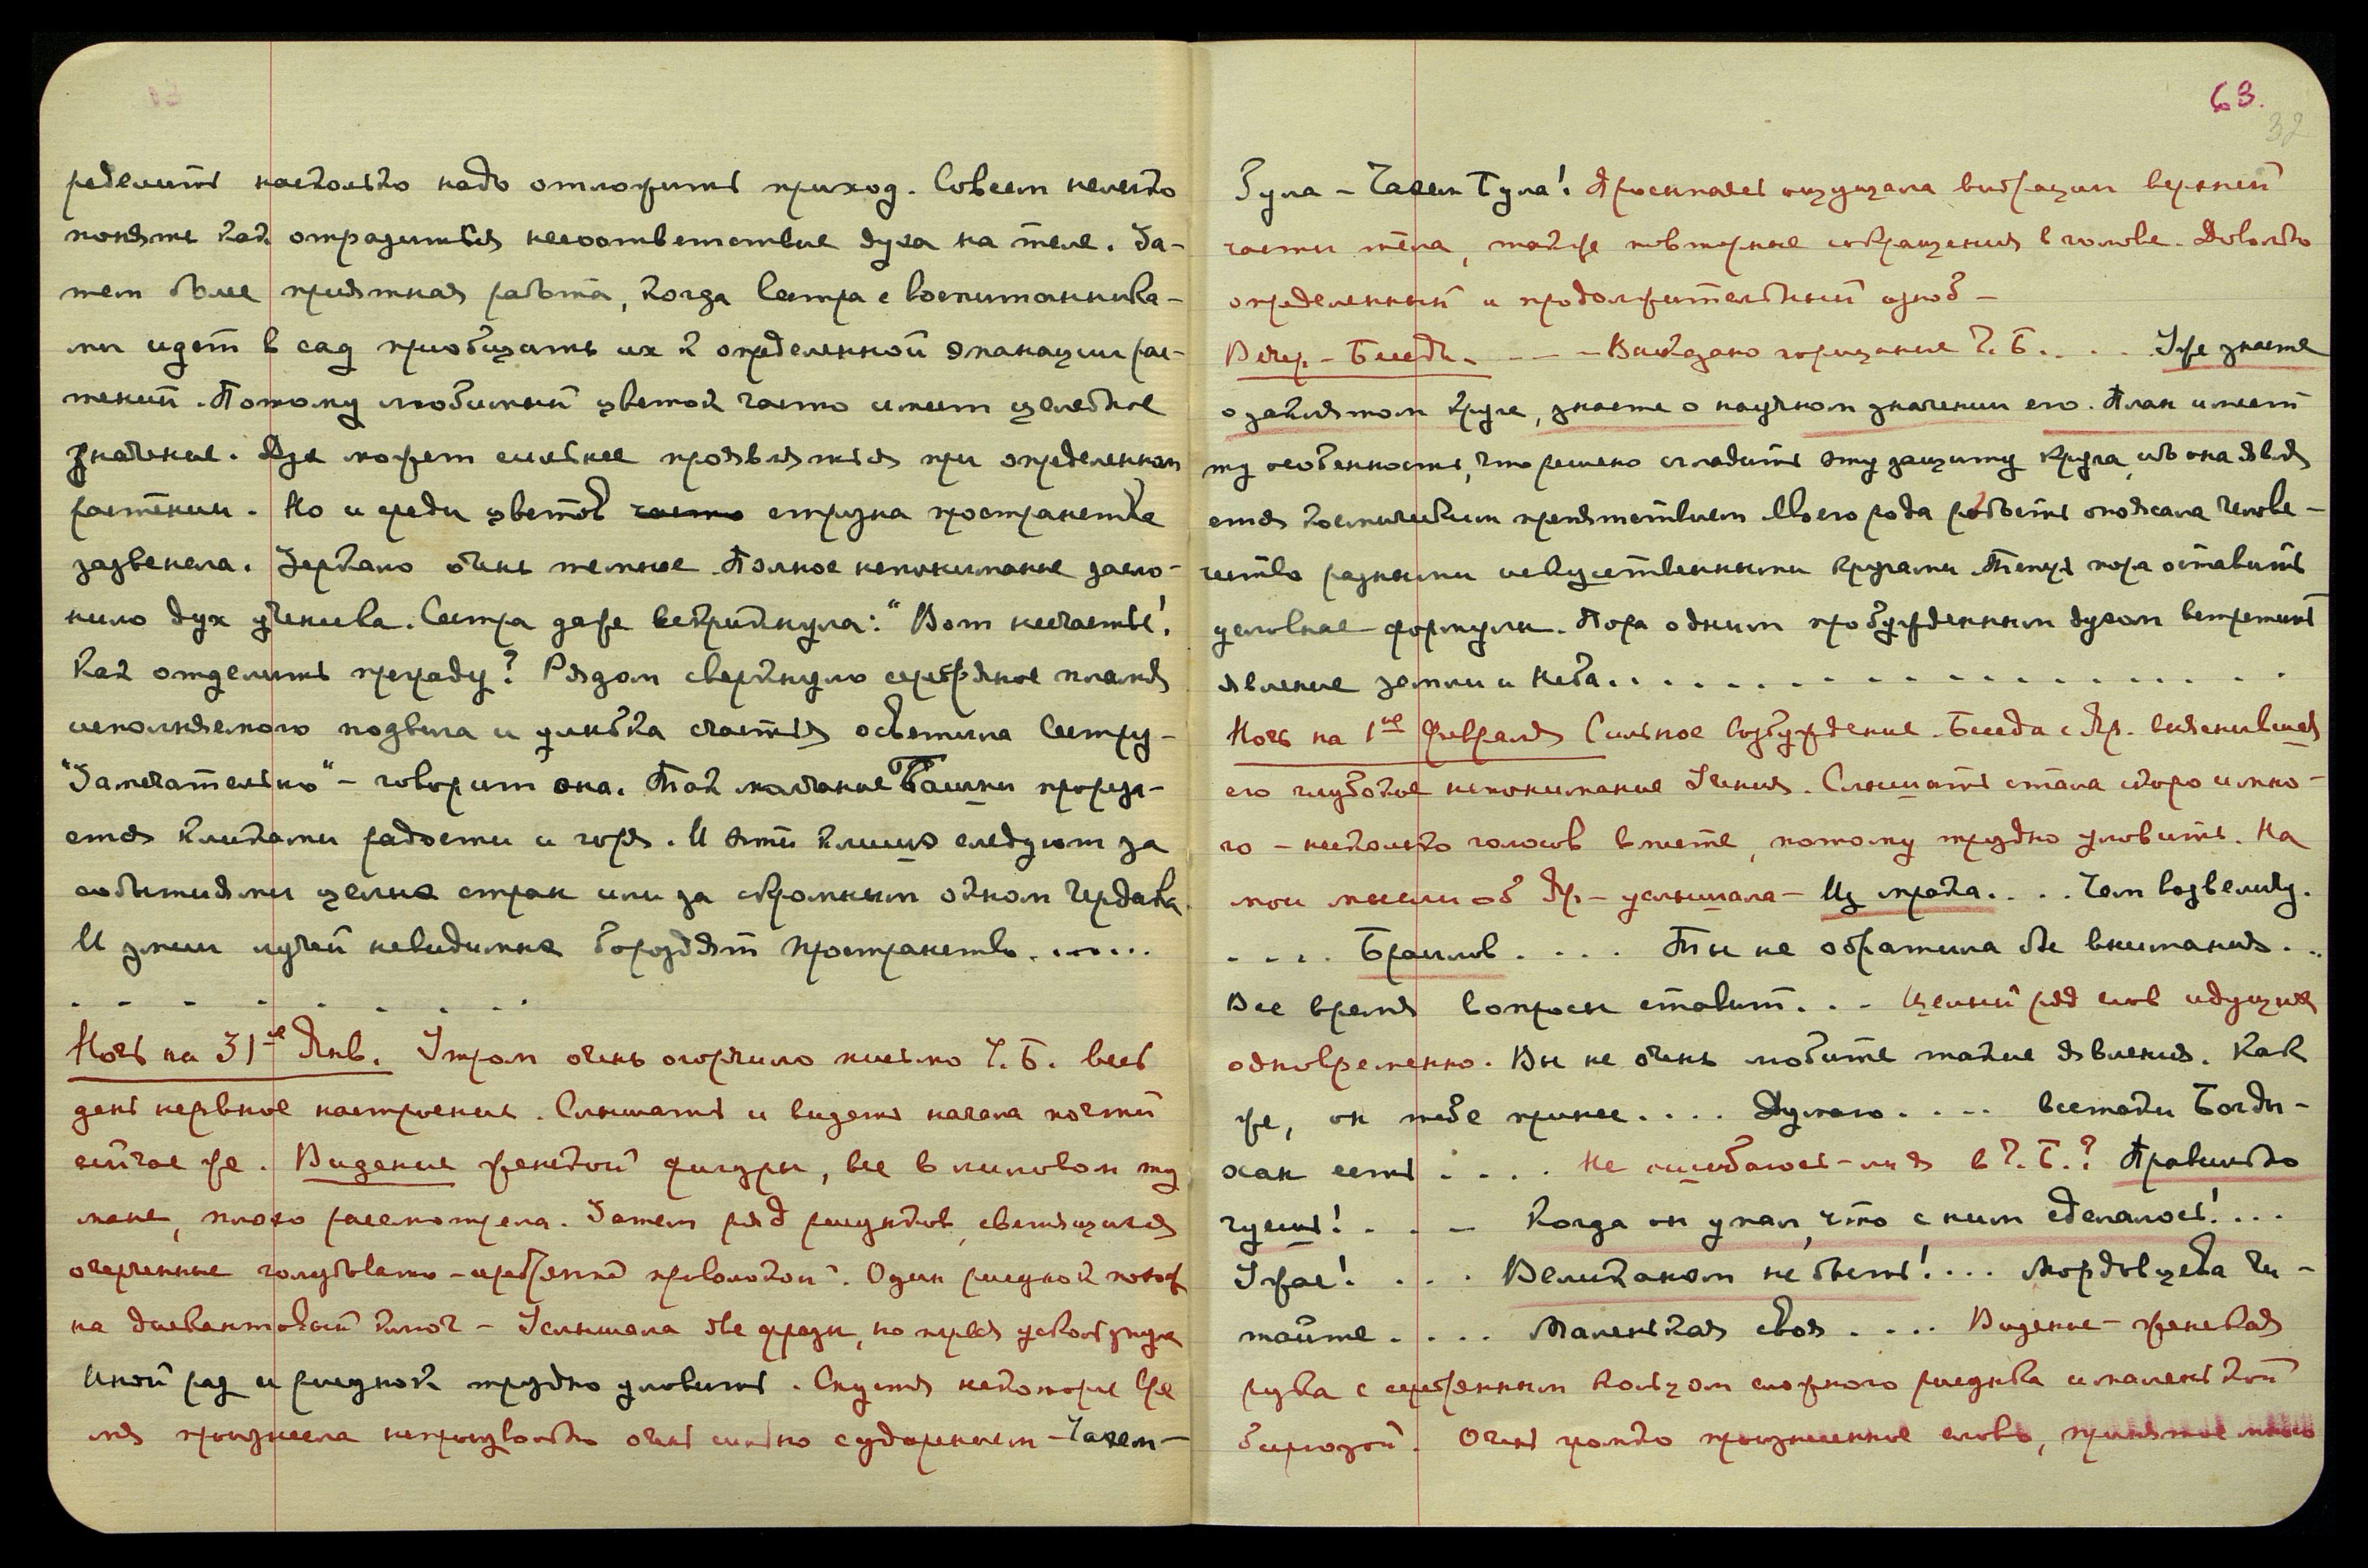 ределить насколько надо отложить приход. Совсем нелегко
понять как отразиться несоответствие духа на теле. За-
тем более приятная работа, когда Сестра с воспитанника-
ми идет в сад приобщить их к определенной эманации рас-
тений. Потому любимый цветок часто имеет целебное
значение. Дух может сильнее проявляться при определенном
растении. Но и среди цветов часто струна пространства
зазвенела. Зеркало очень темное. Полное непонимание засло-
нило дух ученика. Сестра даже вскрикнула: "Вот несчастье!
Как отделить преграду? Рядом сверкнуло серебряное пламя
исполняемого подвига и улыбка счастья осветила Сестру-
"Замечательно" - говорит она. Так молчание Башни прореза-
ется кликами радости и горя. И эти клиши следуют за
событиями целых стран или за скромным окном чердака.
И змеи лучей невидимые бороздят пространство.......
. - - - . . . . .
Ночь на 31ое Янв. Утром очень огорчило письмо Ч.Б. весь
день нервное настроение. Слышать и видеть начала почти
сейчас же. Видение женской фигуры, все в лиловом ту
мане, плохо рассмотрела. Затем ряд рисунков, светящихся
очерченные голубовато-серебряной проволокой. Один рисунок похож
на диевантовый ключ - Услышала две фразы, но первая ускользнула
Иной раз и рисунок трудно уловить. Спустя некоторое вре
мя произнесла непроизвольно очень сильно с ударением - Чахем-
63.
32
Була - Чахем Тула! Проснулась ощущала вибрации верхней
части тела, также повторные сокращения в голове. Довольно
определенный и продолжительный озноб -
Вечер - Беседы. - - - Высказано порицание Ч.Б. . . . Уже знаете
о заклятом круге, знаете о научном значении его. План имеет
ту особенность, что решено сгладить эту защиту круга, ибо она явля
ется космическим препятствием. Своего рода робость опоясала челове-
чество разными искусственными кругами. Теперь пора оставить
условные формулы. Пора одним пробужденным духом встретить
явление земли и Неба. . . . . . . . . . . . . . . . . . .
Ночь на 1ое Февраля Сильное возбуждение. Беседа с Яр. выяснившая
его глубокое непонимание Учения. Слышать стала скоро и мно-
го - несколько голосов вместе, потому трудно уловить. На
мои мысли об Яр. - услышала - Из мрака. . . . Чем возвеличу.
. . . . Браилов . . . . Ты не обратила бы внимания. . .
Все время вопросы ставит. . . Целый ряд слов идущих
одновременно. Вы не очень любите такие явления. Как
же, он тебе принес. . . . Думаю. . . . всетаки Богды-
ахан есть . . . . Не ошибаюсь-ли я в Ч.Б.? Правильно
чуешь! . . - Когда он упал, что с ним сделалось! . . .
Ужас! . . . . Великаном не быть! . . . Мордовцева чи-
тайте. . . . Маленькая своя . . . . Видение - женская
рука с серебряным кольцом сложного рисунка и маленькой
бирюзой. Очень громко произнесенное слово, принятое мною